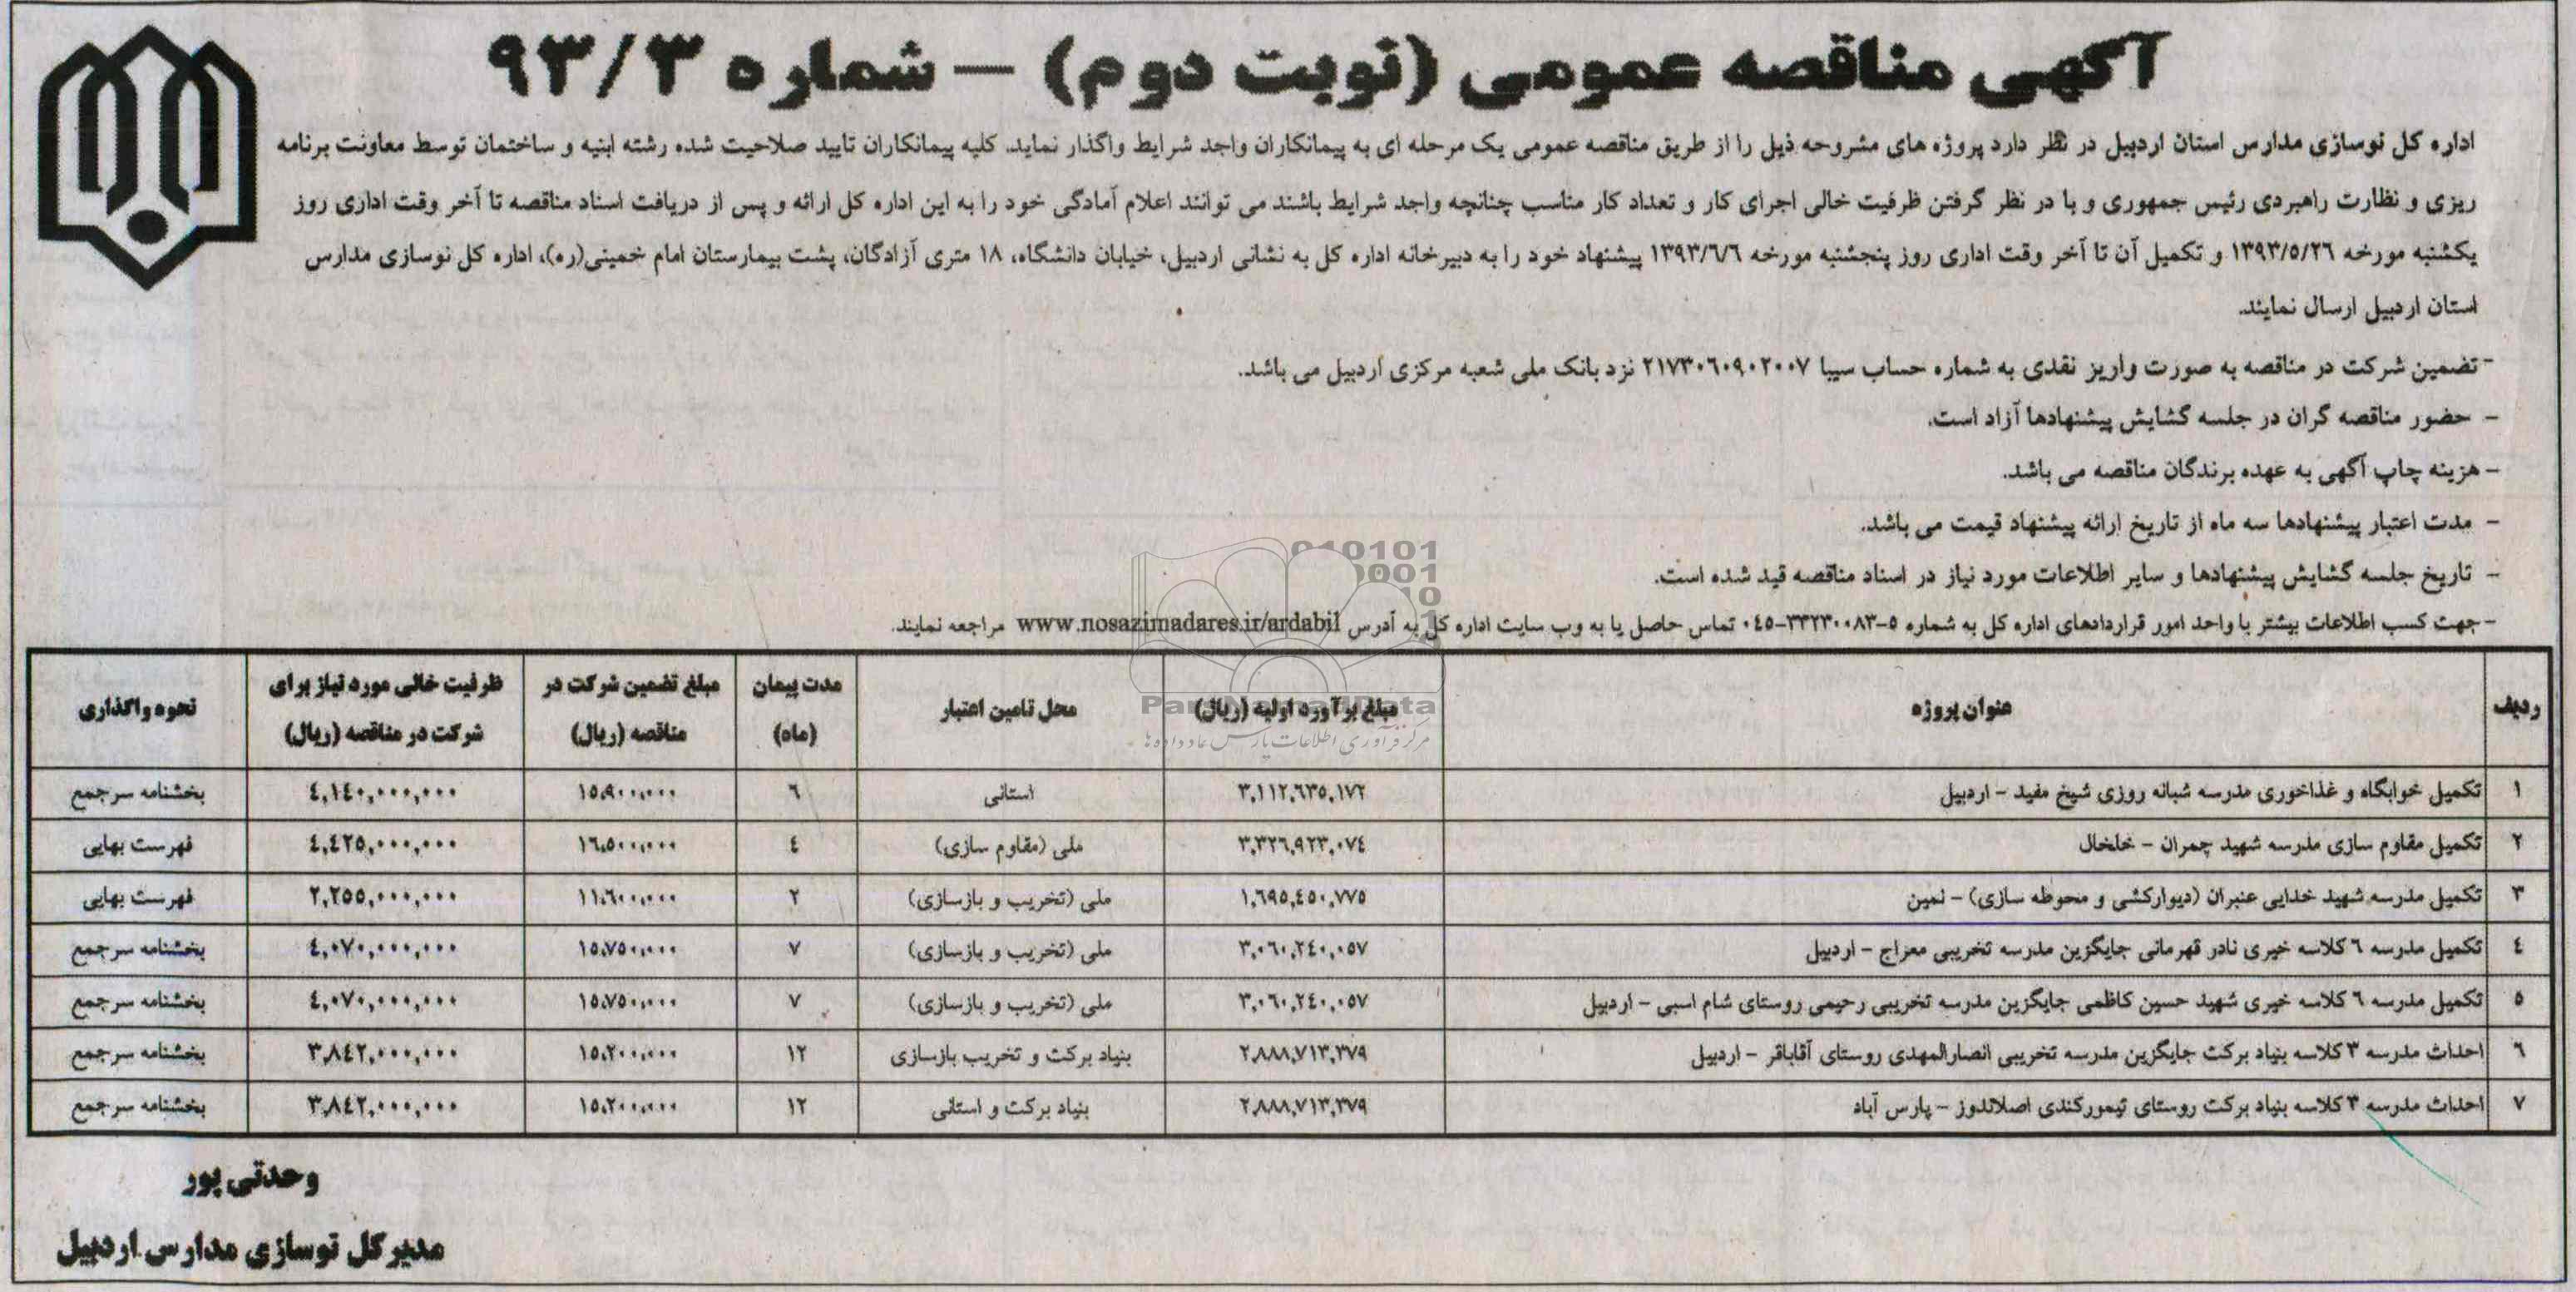 آگهی مناقصه عمومی (نوبت دوم) – شماره ۹۳/۳
اداره کل نوسازی مدارس استان اردبیل در نظر دارد پروژه های مشروحه ذیل را از طریق مناقصه عمومی یک مرحله ای به پیمانکاران واجد شرایط واگذار نماید. کلیه پیمانکاران تایید صلاحیت شده رشته ابنیه و ساختمان توسط معاونت برنامه
ریزی و نظارت راهبردی رئیس جمهوری و با در نظر گرفتن ظرفیت خالی اجرای کار و تعداد کار مناسب چنانچه واجد شرایط باشند می توانند اعلام آمادگی خود را به این اداره کل ارائه و پس از دریافت اسناد مناقصه تا آخر وقت اداری روز
یکشنبه مورخه ۱۳۹۳/۵/۲۶ و تکمیل آن تا آخر وقت اداری روز پنجشنبه مورخه ۱۳۹۳/۶/۶ پیشنهاد خود را به دبیرخانه اداره کل به نشانی اردبیل، خیابان دانشگاه، ۱۸ متری آزادگان، پشت بیمارستان امام خمینی(ره)، اداره کل نوسازی مدارس
استان اردبیل ارسال نمایند.
- تضمین شرکت در مناقصه به صورت واریز نقدی به شماره حساب سیبا ۲۱۷۳۰۶۰۹۰۲۰۰۷ نزد بانک ملی شعبه مرکزی اردبیل می باشد.
- حضور مناقصه گران در جلسه گشایش پیشنهادها آزاد است.
- هزینه چاپ آگهی به عهده برندگان مناقصه می باشد.
- مدت اعتبار پیشنهادها سه ماه از تاریخ ارائه پیشنهاد قیمت می باشد.
- تاریخ جلسه گشایش پیشنهادها و سایر اطلاعات مورد نیاز در اسناد مناقصه قید شده است.
- جهت کسب اطلاعات بیشتر با واحد امور قراردادهای اداره کل به شماره ۵-۳۳۲۳۰۰۸۳-۰۴۵ تماس حاصل یا به وب سایت اداره کل به آدرس www.nosazimadares.ir/ardabil مراجعه نمایند.
ردیف عنوان پروژه مبلغ برآورد اولیه (ریال) محل تامین اعتبار مدت پیمان (ماه) مبلغ تضمین شرکت در مناقصه (ریال) ظرفیت خالی مورد نیاز برای شرکت در مناقصه (ریال) نحوه واگذاری
۱ تکمیل خوابگاه و غذاخوری مدرسه شبانه روزی شیخ مفید – اردبیل ۳,۱۱۲,۶۳۵,۱۷۲ استانی ۶ ۱۵,۹۰۰,۰۰۰ ۴,۱۴۰,۰۰۰,۰۰۰ بخشنامه سرجمع
۲ تکمیل مقاوم سازی مدرسه شهید چمران – خلخال ۳,۳۲۶,۹۲۳,۰۷۴ ملی (مقاوم سازی) ۴ ۱۶,۵۰۰,۰۰۰ ۴,۴۲۵,۰۰۰,۰۰۰ فهرست بهایی
۳ تکمیل مدرسه شهید خدایی عنبران (دیوارکشی و محوطه سازی) – نمین ۱,۶۹۵,۴۵۰,۷۷۵ ملی (تخریب و بازسازی) ۲ ۱۱,۶۰۰,۰۰۰ ۲,۲۵۵,۰۰۰,۰۰۰ فهرست بهایی
۴ تکمیل مدرسه ۶ کلاسه خیری نادر قهرمانی جایگزین مدرسه تخریبی معراج – اردبیل ۳,۰۶۰,۲۴۰,۰۵۷ ملی (تخریب و بازسازی) ۷ ۱۵,۷۵۰,۰۰۰ ۴,۰۷۰,۰۰۰,۰۰۰ بخشنامه سرجمع
۵ تکمیل مدرسه ۶ کلاسه خیری شهید حسین کاظمی جایگزین مدرسه تخریبی رحیمی روستای شام اسبی – اردبیل ۳,۰۶۰,۲۴۰,۰۵۷ ملی (تخریب و بازسازی) ۷ ۱۵,۷۵۰,۰۰۰ ۴,۰۷۰,۰۰۰,۰۰۰ بخشنامه سرجمع
۶ احداث مدرسه ۳ کلاسه بنیاد برکت جایگزین مدرسه تخریبی انصارالمهدی روستای آقاباقر – اردبیل ۲,۸۸۸,۷۱۳,۳۷۹ بنیاد برکت و تخریب بازسازی ۱۲ ۱۵,۲۰۰,۰۰۰ ۳,۸۴۲,۰۰۰,۰۰۰ بخشنامه سرجمع
۷ احداث مدرسه ۳ کلاسه بنیاد برکت روستای تیمورکندی اصلاندوز – پارس آباد ۲,۸۸۸,۷۱۳,۳۷۹ بنیاد برکت و استانی ۱۲ ۱۵,۲۰۰,۰۰۰ ۳,۸۴۲,۰۰۰,۰۰۰ بخشنامه سرجمع
وحدتی پور
مدیرکل نوسازی مدارس اردبیل